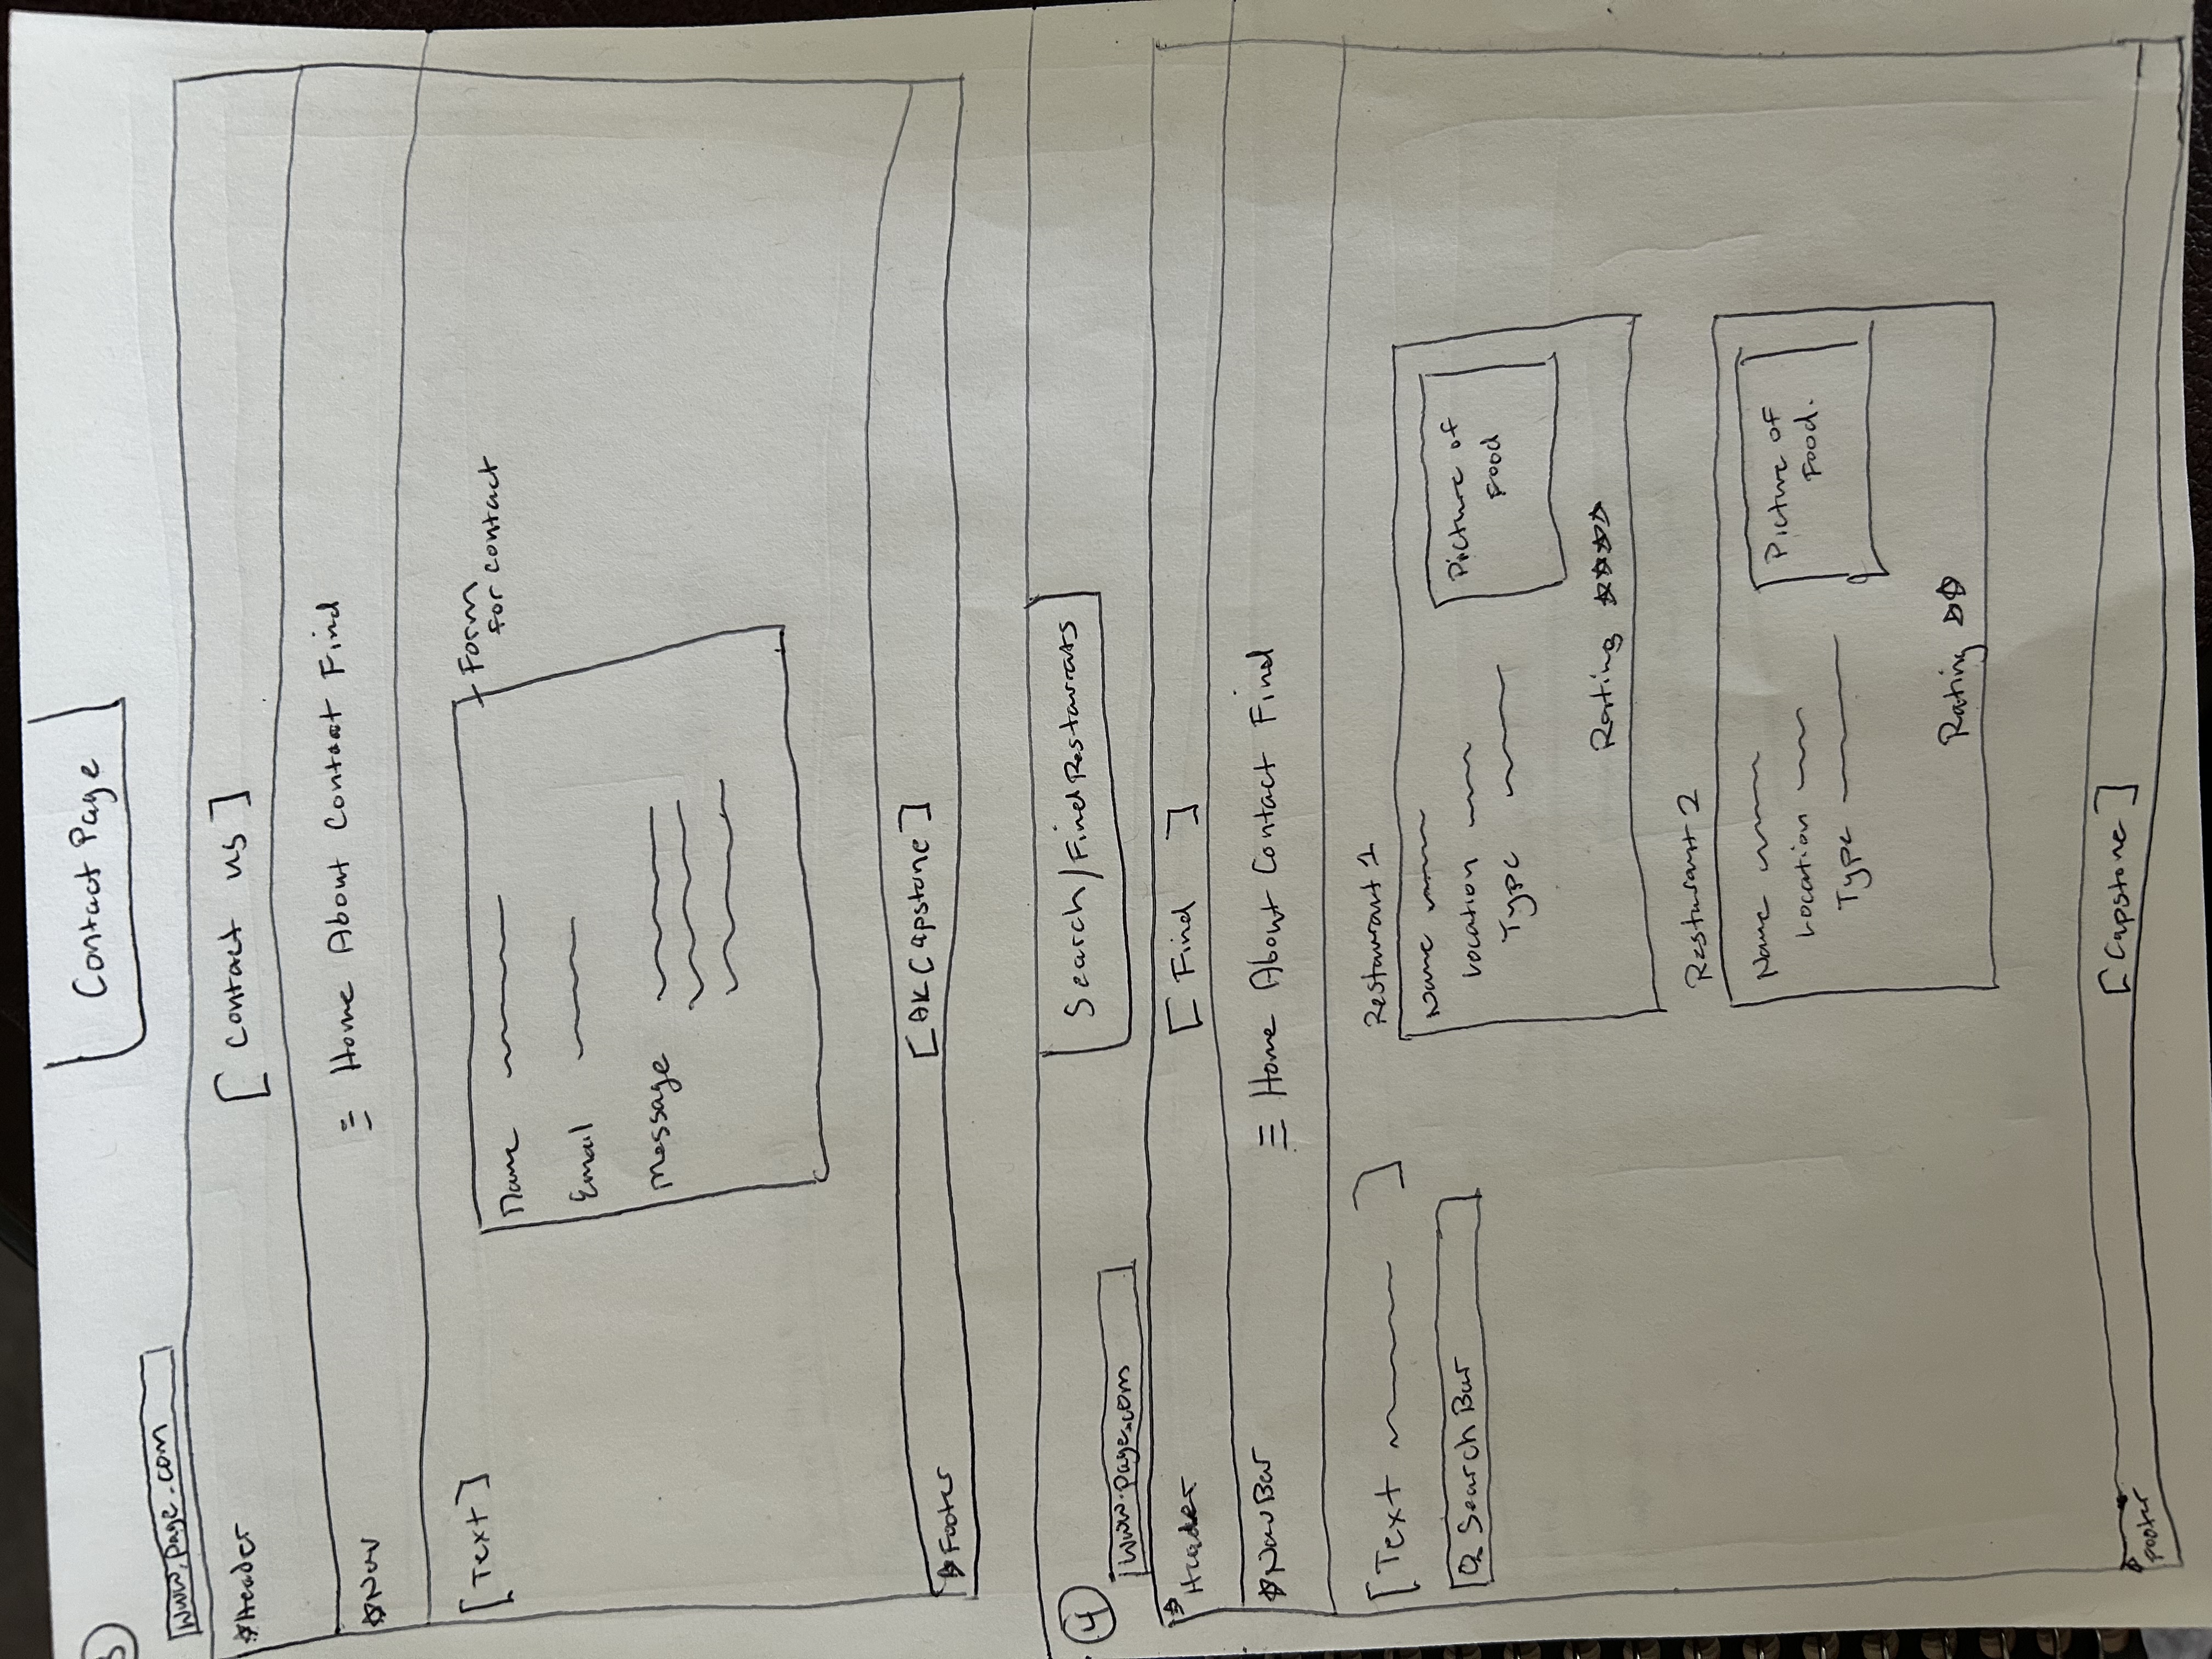 3
Contact Page
www.page.com
☆Header
[ Contact us ]
☆Nav
☰ Home About Contact Find
[Text]
Name
Form
for contact
Email
Message
☆Footer
[AK Capstone]
4
Search/Find Restaurats
www.page.com
☆Header
[ Find ]
☆NavBar
☰ Home About Contact Find
[Text ]
Search Bar
Restaurant 1
Name
Location
Type
Picture of
Food
Rating ☆☆☆☆
Restaurant 2
Name
Location
Type
Picture of
Food.
Rating ☆☆
☆Footer
[Capstone]